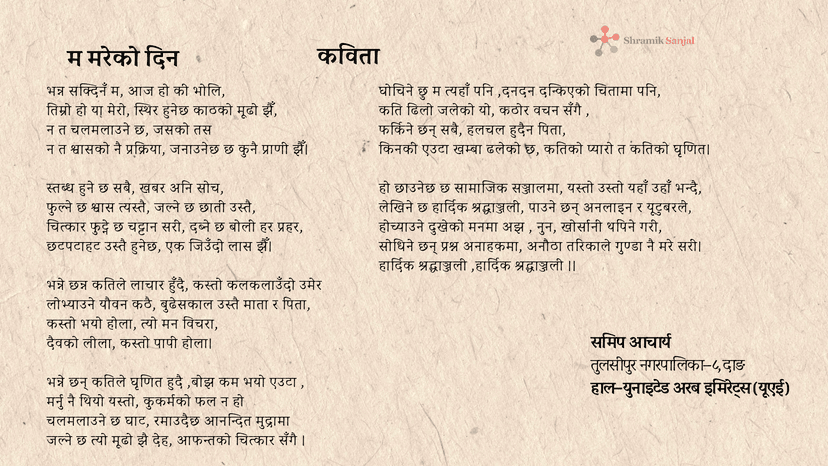 म मरेको दिन
कविता
Shramik Sanjal
भन्न सक्दिनँ म, आज हो की भोलि,
तिम्रो हो या मेरो, स्थिर हुनेछ काठको मूढो झैँ,
न त चलमलाउने छ, जसको तस
न त श्वासको नै प्रक्रिया, जनाउनेछ छ कुनै प्राणी झैँ।
स्तब्ध हुने छ सबै, खबर अनि सोच,
फुल्ने छ श्वास त्यस्तै, जल्ने छ छाती उस्तै,
चित्कार फुट्ने छ चट्टान सरी, दब्ने छ बोली हर प्रहर,
छटपटाहट उस्तै हुनेछ, एक जिउँदो लास झैँ।
भन्ने छन्न कतिले लाचार हुँदै, कस्तो कलकलाउँदो उमेर
लोभ्याउने यौवन कठै, बुढेसकाल उस्तै माता र पिता,
कस्तो भयो होला, त्यो मन विचरा,
दैवको लीला, कस्तो पापी होला।
भन्ने छन् कतिले घृणित हुदै ,बोझ कम भयो एउटा ,
मर्नु नै थियो यस्तो, कुकर्मको फल न हो
चलमलाउने छ घाट, रमाउदैछ आनन्दित मुद्रामा
जल्ने छ त्यो मूढो झै देह, आफन्तको चित्कार सँगै ।
घोचिने छु म त्यहाँ पनि ,दनदन दन्किएको चितामा पनि,
कति ढिलो जलेको यो, कठोर वचन सँगै ,
फर्किने छन् सबै, हलचल हुदैन पिता,
किनकी एउटा खम्बा ढलेको छ, कतिको प्यारो त कतिको घृणित।
हो छाउनेछ छ सामाजिक सञ्जालमा, यस्तो उस्तो यहाँ उहाँ भन्दै,
लेखिने छ हार्दिक श्रद्धाञ्जली, पाउने छन् अनलाइन र यूटुबरले,
होच्याउने दुखेको मनमा अझ , नुन, खोर्सानी थपिने गरी,
सोधिने छन् प्रश्न अनाहकमा, अनौठा तरिकाले गुण्डा नै मरे सरी।
हार्दिक श्रद्धाञ्जली ,हार्दिक श्रद्धाञ्जली ।।
समिप आचार्य
तुलसीपुर नगरपालिका–८,दाङ
हाल–युनाइटेड अरब इमिरेट्स(यूएई)